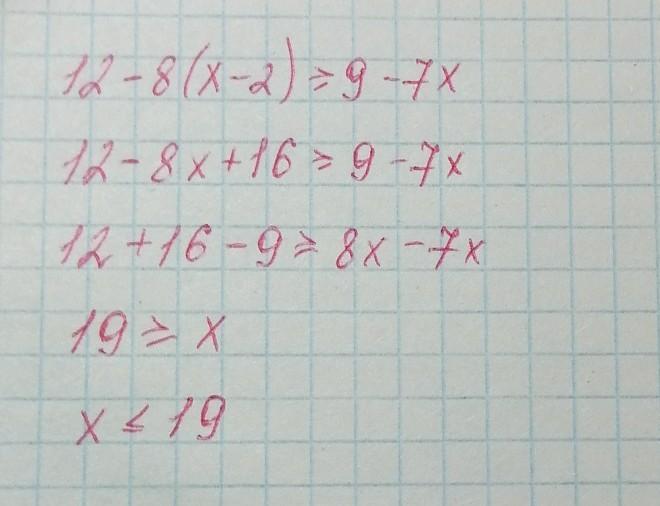 12 - 8(x - 2) ⩾ 9 - 7x
12 - 8x + 16 ⩾ 9 - 7x
12 + 16 - 9 ⩾ 8x - 7x
19 ⩾ x
x ⩽ 19